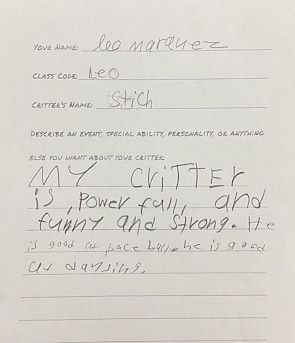 YOUR NAME: leo marquez
CLASS CODE: Leo
CRITTER'S NAME: Stich
DESCRIBE AN EVENT, SPECIAL ABILITY, PERSONALITY, OR ANYTHING
ELSE YOU WANT ABOUT YOUR CRITTER:
MY CRiTTEr
is, Power full, and
funny and Strong. He
is good at bace ball. he is good
at dansing.